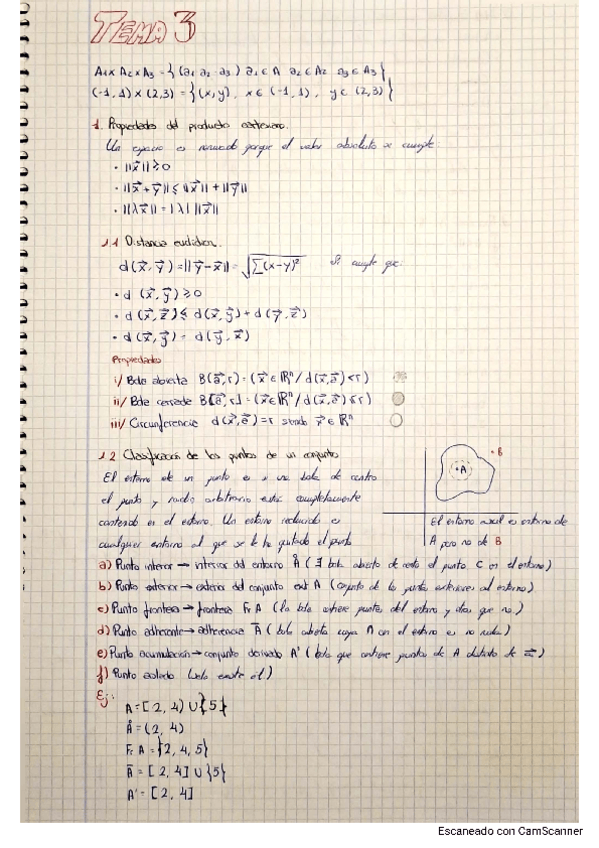 TEMA 3
A1 x A2 x A3 = {(a1 a2 a3) a1 ∈ A a2 ∈ A2 a3 ∈ A3}
(-1, 1) x (2,3) = {(x,y), x ∈ (-1,1), y ∈ (2,3)}
1. Propiedades del producto cartesiano.
Un espacio es normado porque el valor absoluto x cumple:
· ||x⃗|| ≥ 0
· ||x⃗ + y⃗|| ≤ ||x⃗|| + ||y⃗||
· ||λx⃗|| = |λ| ||x⃗||
1.1 Distancia euclídea.
d(x⃗, y⃗) = ||y⃗ - x⃗|| = √Σ(x-y)² Se cumple que:
· d (x⃗, y⃗) ≥ 0
· d (x⃗, z⃗) ≤ d(x⃗, y⃗) + d(y⃗, z⃗)
· d (x⃗, y⃗) = d(y⃗, x⃗)
Propiedades
i/ Bola abierta B(a⃗, r) = (x⃗ ∈ ℝⁿ / d(x⃗, a⃗) < r)
ii/ Bola cerrada B[a⃗, r] = (x⃗ ∈ ℝⁿ / d(x⃗, a⃗) ≤ r)
iii/ Circunferencia d(x⃗, a⃗) = r siendo x⃗ ∈ ℝⁿ
1.2 Clasificación de los puntos de un conjunto
El entorno de un punto es una bola de centro
el punto y radio arbitrario está completamente
contenido en el entorno. Un entorno reducido es
cualquier entorno al que se le ha quitado el punto
· A
· B
El entorno azul es entorno de
A pero no de B
a) Punto interior → interior del entorno Å (∃ bola abierta de centro el punto C en el entorno)
b) Punto exterior → exterior del conjunto ext A (conjunto de los puntos exteriores al entorno)
c) Punto frontera → frontera Fr A (la bola contiene puntos del entorno y otros que no)
d) Punto adherente → adherencia A̅ (bola abierta cuya ∩ con el entorno es no nula)
e) Punto acumulación → conjunto derivado A' (bola que contiene puntos de A distinto de)
f) Punto aislado (solo existe él)
Ej:
A = [2, 4) ∪ {5}
Å = (2, 4)
Fr A = {2, 4, 5}
A̅ = [2, 4] ∪ {5}
A' = [2, 4]
Escaneado con CamScanner